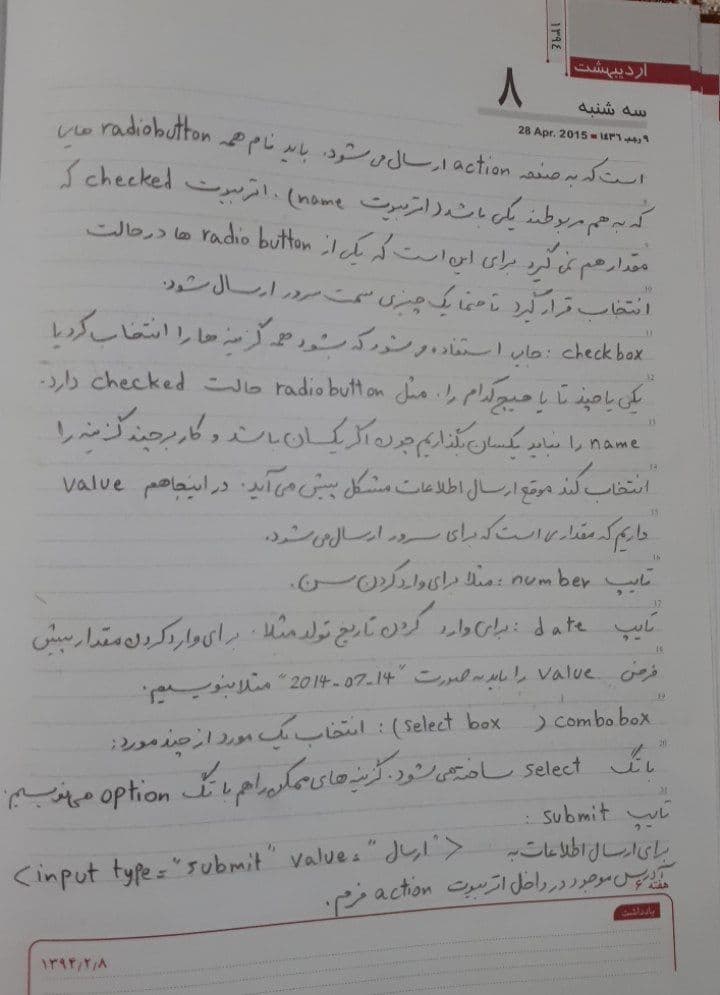 ۱۳۹۴
اردیبهشت
۸
سه شنبه
۹ رجب ۱٤۳٦ ■ 28 Apr. 2015
است که به صفحه action ارسال می شود. باید نام همه radiobutton هایی
که به هم مربوطند یکی باشد (اتریبیوت name). اتریبیوت checked که
مقدار هم نمی گیرد برای این است که یکی از radio button ها در حالت
انتخاب قرار گیرد تا حتما یک چیزی سمت سرور ارسال شود.
checkbox : جایی استفاده میشود که بشود همه گزینه ها را انتخاب کرد یا
یکی یا چند تا یا هیچ کدام را. مثل radiobutton حالت checked دارد.
name را نباید یکسان بگذاریم چون اگر یکسان باشد و کاربر چند گزینه را
انتخاب کند موقع ارسال اطلاعات مشکل پیش می آید. در اینجا هم value
داریم که مقداری است که برای سرور ارسال می شود.
تایپ number : مثلا برای وارد کردن سن.
تایپ date : برای وارد کردن تاریخ تولد مثلا. برای وارد کردن مقدار پیش
فرض value را باید به صورت "2014-07-14" مثلا بنویسیم.
combobox (select box) : انتخاب یک مورد از چند مورد:
با تگ select ساخته می شود. گزینه های ممکن را هم با تگ option می نویسیم.
تایپ submit :
<input type="submit" value="ارسال"> برای ارسال اطلاعات به
آدرس موجود در داخل اتریبیوت action فرم.
هفته ۶
یادداشت
۱۳۹۴/۲/۸